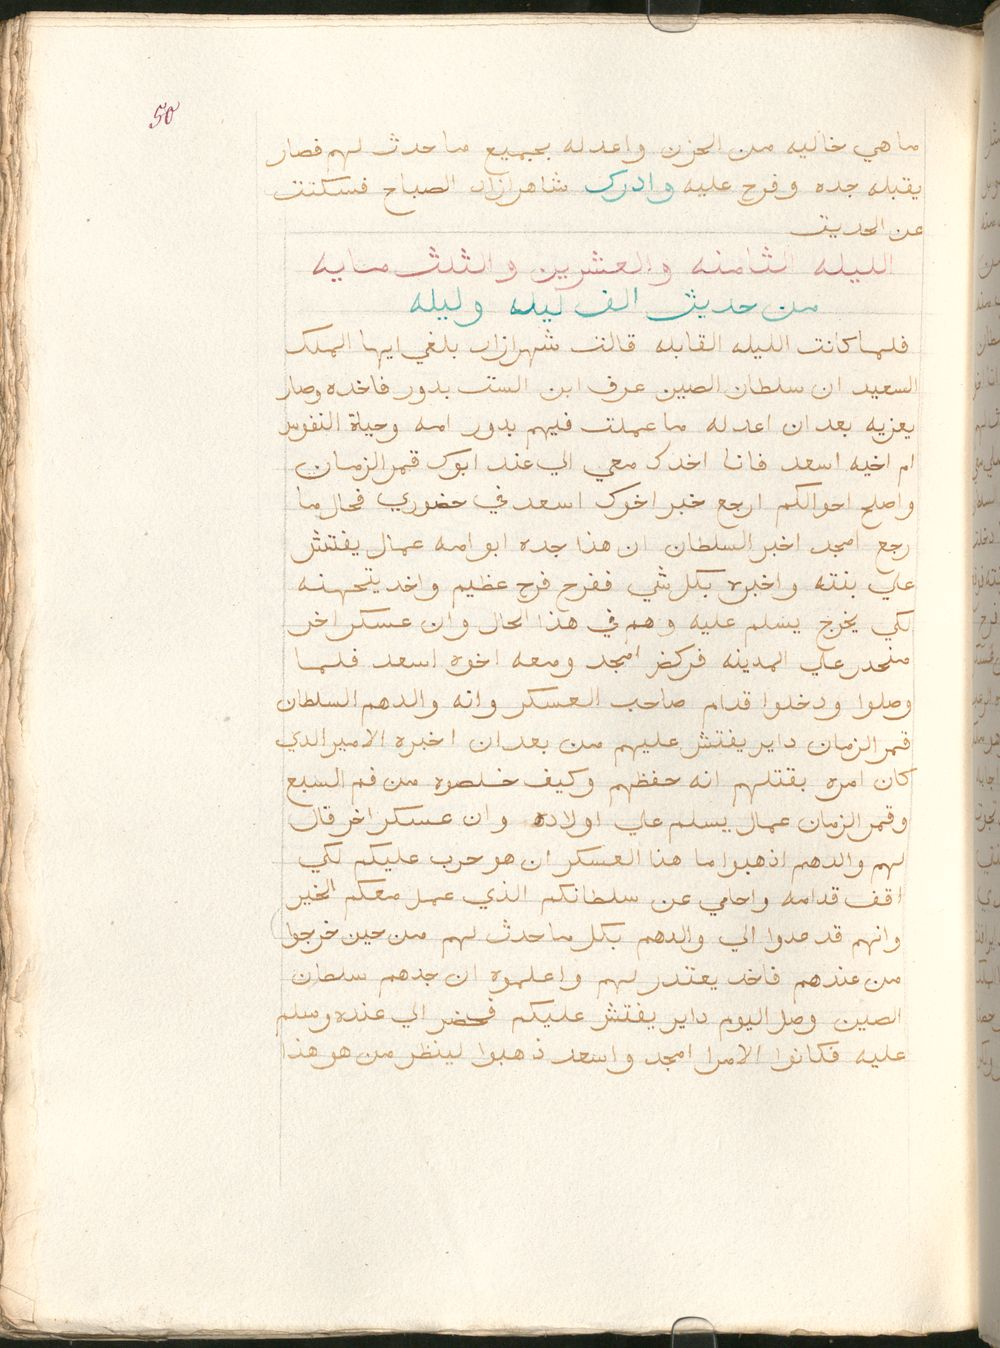 50
ما هي خاليه من الحزن واعد له بجميع ما حدث لهم فصار
يقبله جده وفرح عليه وادرك شاهرازاد الصباح فسكتت
عن الحديث
الليله الثامنه والعشرين والثلث مايه
من حديث الف ليله وليله
فلما كانت الليله القابله قالت شهرازاد بلغي ايها الملك
السعيد ان سلطان الصين عرف ابن الست بدور فاخده وصار
يعزيه بعد ان اعد له ما عملت فيهم بدور امه وحياة النفوس
ام اخيه اسعد فانا اخدك معي الي عند ابوك قمر الزمان
واصلح احوالكم ارجع خبر اخوك اسعد في حضوري فحال ما
رجع امجد اخبر السلطان ان هذا جده ابو امه عمال يفتش
علي بنته واخبره بكل شي ففرح فرح عظيم واخد يتجهنه
لكي يخرج يسلم عليه وهم في هذا الحال وان عسكر اخر
منحدر علي المدينه فركض امجد ومعه اخوه اسعد فلما
وصلوا ودخلوا قدام صاحب العسكر وانه والدهم السلطان
قمر الزمان داير يفتش عليهم من بعد ان اخبره الامير الدي
كان امره بقتلهم انه حفظهم وكيف خلصوه من فم السبع
وقمر الزمان عمال يسلم علي اولاده وان عسكر اخر قال
لهم والدهم اذهبوا ما هذا العسكر ان هو حرب عليكم لكي
اقف قدامه واحامي عن سلطانكم الذي عمل معكم الخير
وانهم قد عدوا الي والدهم بكل ما حدث لهم من حين خرجوا
من عندهم فاخد يعتدر لهم واعلموه ان جدهم سلطان
الصين وصل اليوم داير يفتش عليكم فحضر الي عنده وسلم
عليه فكانوا الامرا امجد واسعد ذهبوا لينظر من هو هذا